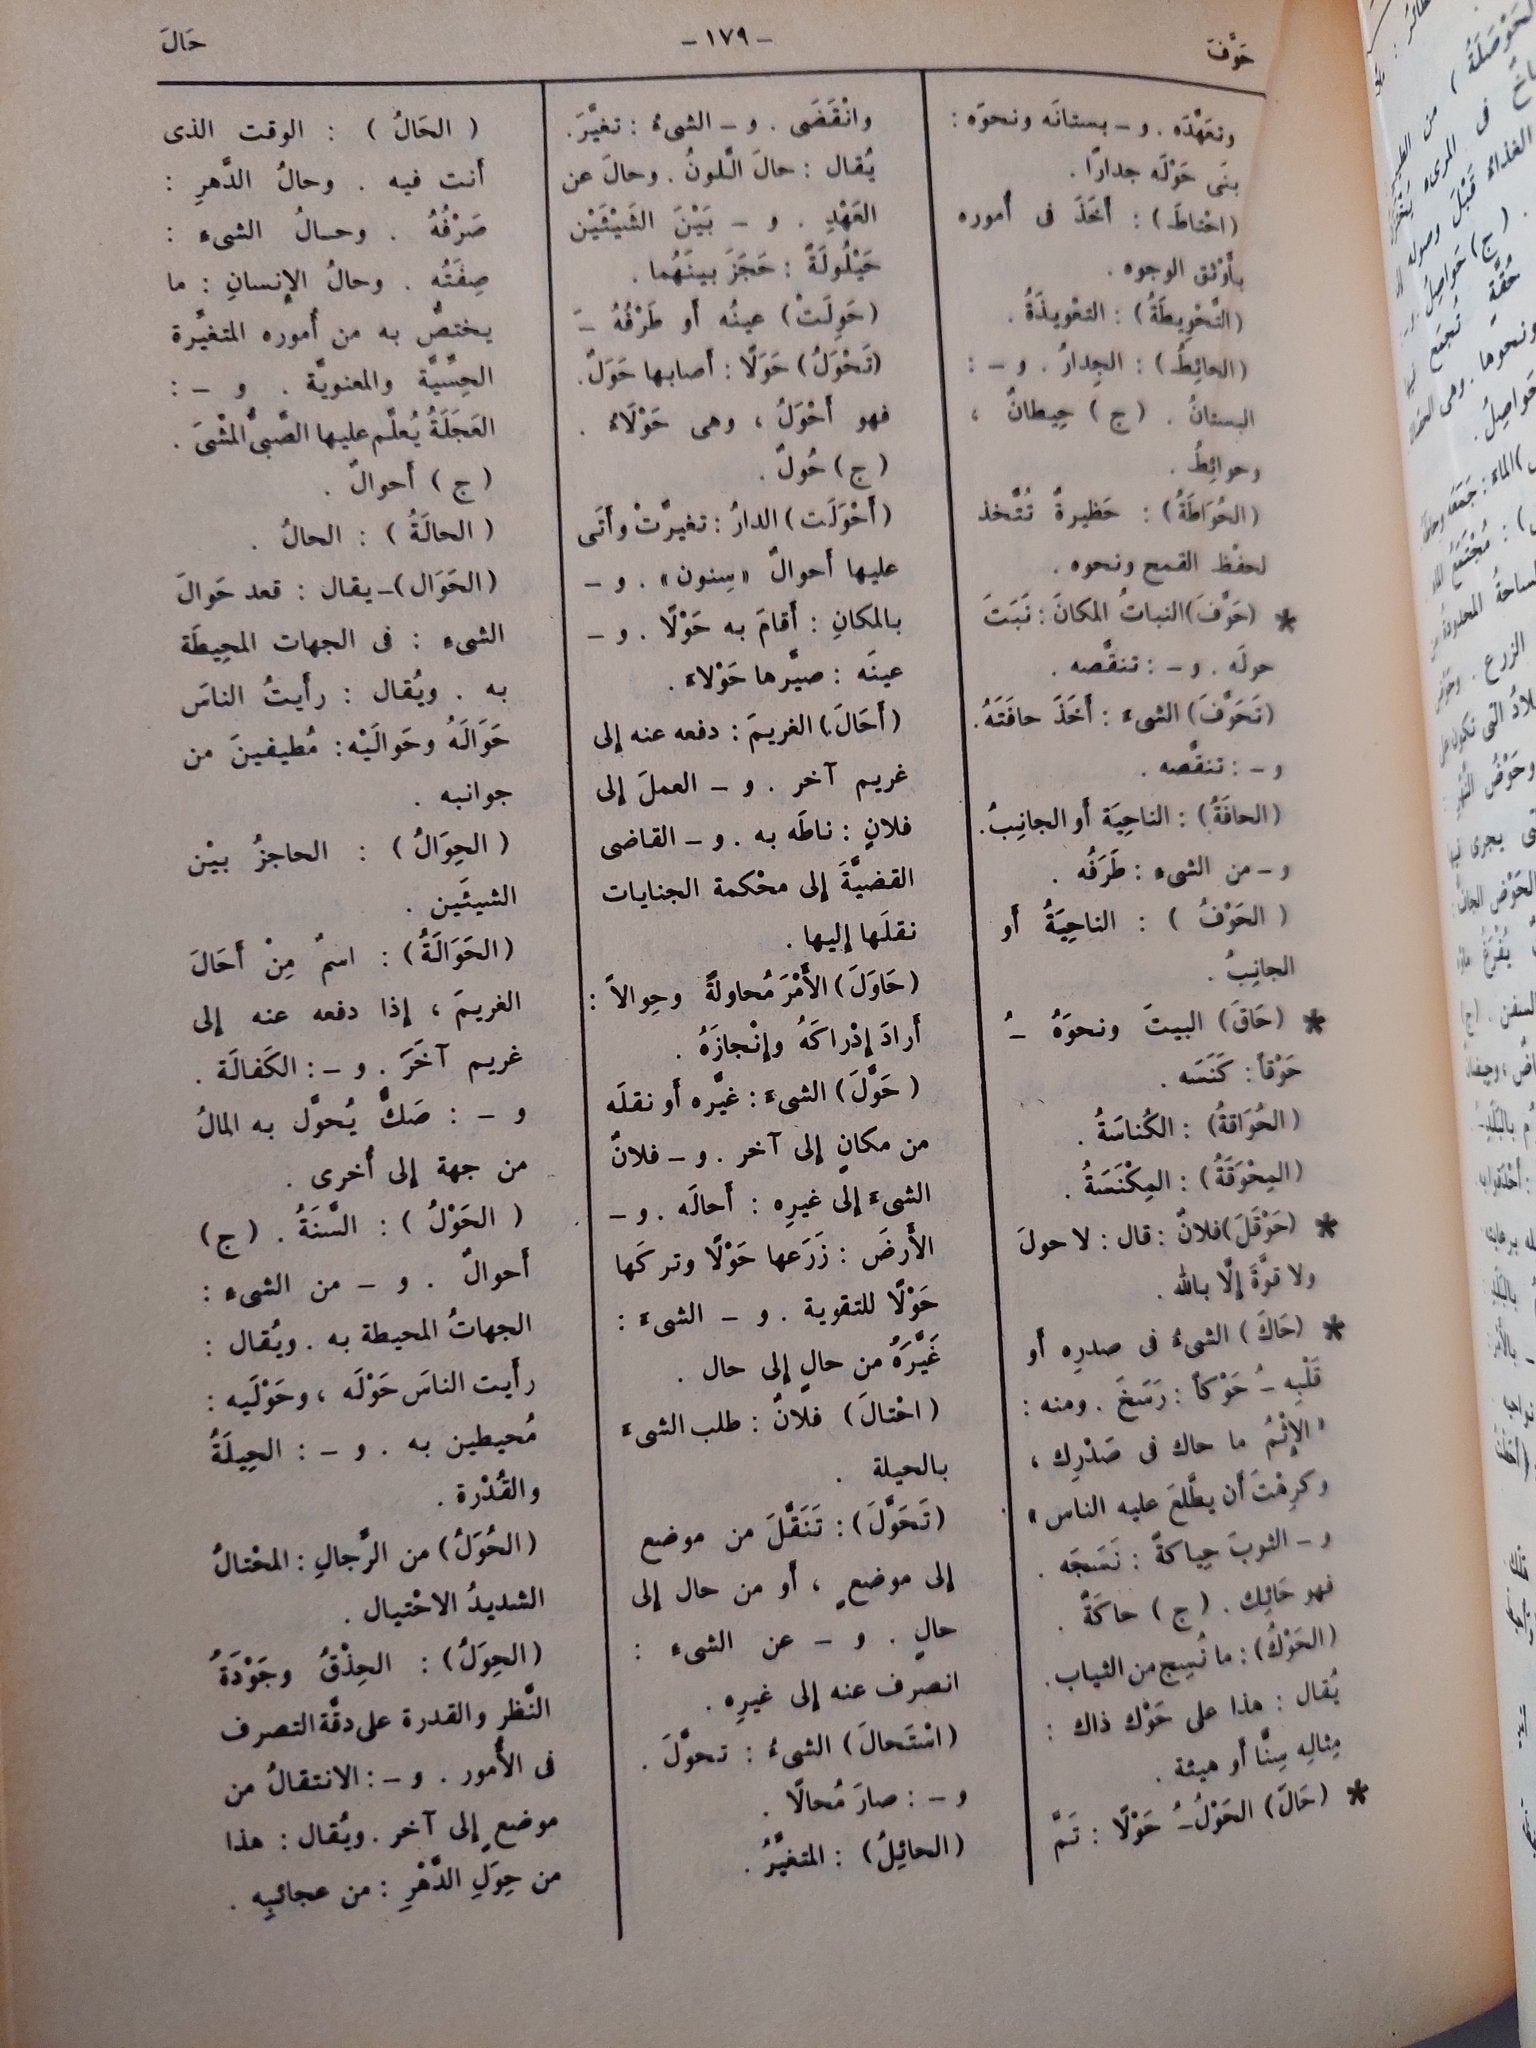 حَوَّفَ
– ١٧٩ –
حَالَ
وتعَهَّدَه . و – بستانَه ونحوَه :
بنَى حَوْلَه جدارًا .
(احْتاطَ) : أَخَذَ فى أُموره
بأَوْثق الوجوه .
(التَّحْوِيطَةُ) : التعْويذَةُ .
(الحائِطُ) : الجِدارُ . و – :
البستانُ . (ج) حِيطانٌ ،
وحوائِطُ .
(الحُوَاطَةُ) : حَظيرةٌ تُتَّخذ
لحفْظ القمح ونحوه .
* (حَوَّفَ) النباتُ المكانَ : نَبَتَ
حولَه . و – : تنقَّصه .
(تَحَوَّفَ) الشىءَ : أَخَذَ حافَتَهُ .
و – : تنقَّصه .
(الحافَةُ) : الناحِيَة أو الجانِبُ .
و – من الشىء : طَرَفُه .
(الحَوْفُ) : الناحِيَةُ أَو
الجانِبُ .
* (حَاقَ) البيتَ ونحوَهُ –ُ
حَوْقاً : كَنَسَه .
(الحُوَاقةُ) : الكُناسَةُ .
(المِحْوَقَةُ) : المِكْنَسَةُ .
* (حَوْقَلَ) فلانٌ : قال : لا حولَ
ولا قوَّةَ إلَّا بالله .
* (حَاكَ) الشىءُ فى صدرِه أَو
قَلْبِهِ –ُ حَوْكاً : رَسَخَ . ومنه :
« الإِثْمُ ما حاك فى صَدْرِك ،
وكرِهْتَ أَن يطَّلعَ عليه الناس »
و – الثوبَ حِياكةً : نَسَجَه .
فهو حَائِك . (ج) حاكَةٌ .
(الحَوْكُ) : ما نُسِج من الثياب .
يُقال : هذا على حَوْك ذاك :
مِثالِه سِنًّا أَو هيئة .
* (حَالَ) الحَوْلُ –ُ حَوْلًا : تَمَّ
وانْقَضَى . و – الشىءُ : تغيَّرَ .
يُقال : حالَ الَّلونُ . وحالَ عن
العَهْدِ . و – بَيْنَ الشَيْئَيْن
حَيْلُولَةً : حَجَزَ بينَهُما .
(حَوِلَتْ) عينُه أَو طَرْفُهُ –َ
(تَحْوَلُ) حَوَلًا : أَصابها حَوَلٌ .
فهو أَحْوَلُ ، وهى حَوْلَاءُ .
(ج) حُولٌ .
(أَحْوَلَت) الدارُ : تغيرَّتْ وأَتَى
عليها أَحوالٌ « سِنون » . و –
بالمكانِ : أَقامَ به حَوْلًا . و –
عينَه : صيَّرها حَوْلاءَ .
(أَحَالَ) الغريمَ : دفعه عنه إلى
غريم آخر . و – العملَ إلى
فلانٍ : ناطَه به . و – القاضى
القضيَّةَ إلى محْكمة الجنايات
نقلَها إليها .
(حَاوَلَ) الأَمْرَ مُحاولةً وحِوالاً :
أَرادَ إدْراكَهُ وإنْجازَهُ .
(حَوَّلَ) الشىءَ : غيَّره أَو نقلَه
من مكانٍ إلى آخر . و – فلانٌ
الشىءَ إلى غيرِه : أَحالَه . و –
الأَرضَ : زَرَعها حَوْلًا وتركَها
حَوْلًا للتقوية . و – الشىءَ :
غَيَّرَهُ من حالٍ إلى حال .
(احْتالَ) فلانٌ : طلب الشىءَ
بالحيلة .
(تَحَوَّلَ) : تَنَقَّلَ من موضع
إلى موضعٍ ، أَو من حال إلى
حالٍ . و – عن الشىء :
انصرف عنه إلى غيرِه .
(اسْتَحالَ) الشىءُ : تحوَّلَ .
و – : صارَ مُحالًا .
(الحائِلُ) : المتغيَّرُ .
(الحَالُ) : الوقت الذى
أَنت فيه . وحالُ الدَّهرِ :
صَرْفُهُ . وحـالُ الشىء :
صِفَتُه . وحالُ الإِنسانِ : ما
يختصُّ به من أُموره المتغيَّرة
الحِسَّيَّة والمعنويَّة . و – :
العَجَلَةُ يُعلَّم عليها الصَّبىُّ المشْىَ .
(ج) أَحوالٌ .
(الحالَةُ) : الحالُ .
(الحَوَال) – يقال : قعد حَوالَ
الشىء : فى الجهات المحِيطَة
به . ويُقال : رأَيتُ الناسَ
حَوَالَهُ وحَوالَيْه : مُطيفينَ من
جوانبه .
(الحِوَالُ) : الحاجزُ بيْن
الشيئَين .
(الحَوَالَةُ) : اسمٌ مِنْ أَحَالَ
الغريمَ ، إذا دفعه عنه إلى
غريم آخَرَ . و – : الكَفالَة .
و – : صَكٌّ يُحوَّل به المالُ
من جهة إلى أُخرى .
(الحَوْلُ) : السَّنَةُ . (ج)
أَحوالٌ . و – من الشىء :
الجهاتُ المحيطة به . ويُقال :
رأَيت الناسَ حَوْلَه ، وحَوْلَيه :
مُحيطين به . و – : الحِيلَةُ
والقُدْرة .
(الحُوَلُ) من الرَّجالِ : المحْتالُ
الشديدُ الاحْتيال .
(الحِوَلُ) : الحِذْقُ وجَوْدَةُ
النَّظرِ والقدرة على دقَّة التصرف
فى الأُمور . و – : الانتقالُ من
موضعٍ إلى آخر . ويُقال : هذا
من حِوَلِ الدَّهْرِ : من عجائبِه .